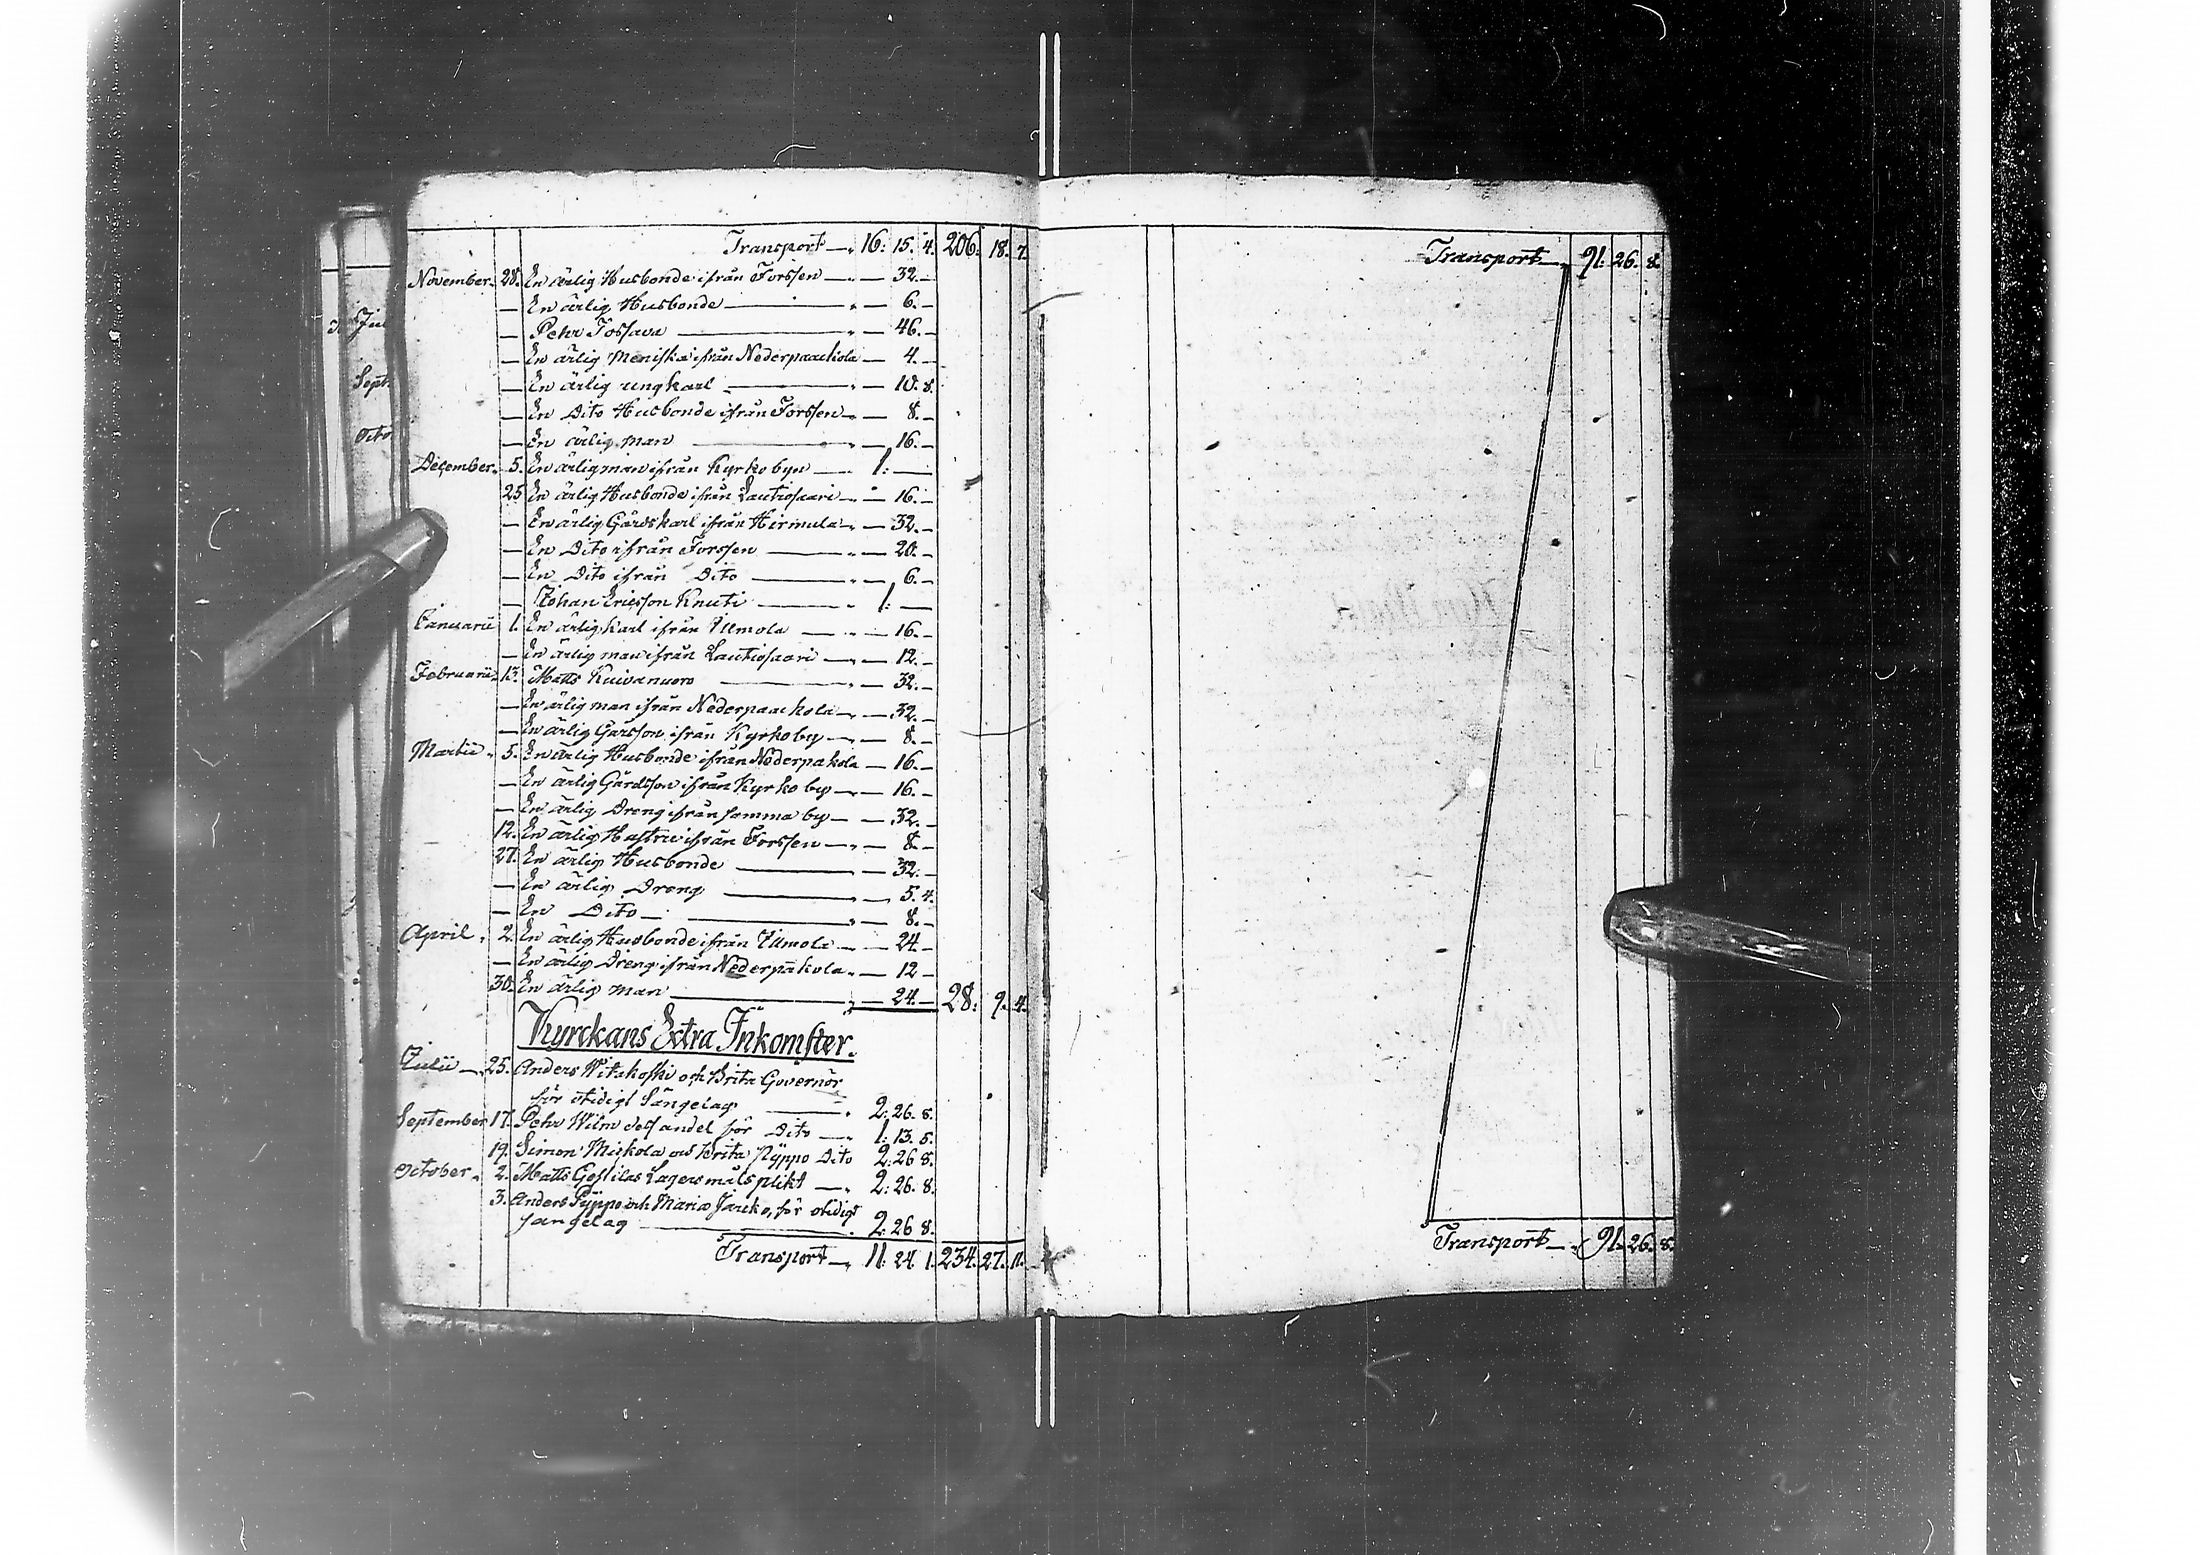 Transport — 16: 15. 4. 206. 18. 7.
November. 28. En ärlig Husbonde ifrån Forssen — 32. —
— En ärlig Husbonde — 6. —
— Pehr Tossava — 46. —
— En ärlig Meniska ifrån Nederpaackola — 4. —
— En ärlig ung karl — 10. 8.
— En Dito Husbonde ifrån Forssen — 8. —
— En ärlig man — 16. —
December. 5. En ärlig man ifrån Kyrko byn — 1: —
25 En ärlig Husbonde ifrån Lautiosaari — 16. —
— En ärlig Gårdskarl ifrån Hirmula — 32. —
— En Dito ifrån Forssen — 20. —
— En Dito ifrån Dito — 6. —
— Johan Ericsson Knuti — 1: —
Januarii 1. En ärlig karl ifrån Ylimola — 16. —
— En ärlig man ifrån Lautiosaari — 12. —
Februarii 13. Matts Kuivanuoro — 32. —
— En ärlig man ifrån Nederpaackola — 32. —
— En ärlig Gårdsson ifrån Kyrkoby — 8. —
Martii 5. En ärlig Husbonde ifrån Nederpakola — 16. —
— En ärlig Gårdsson ifrån Kyrko by — 16. —
— En ärlig Dreng ifrån samma by — 32. —
12. En ärlig Hustru ifrån Forssen — 8 —
27. En ärlig Husbonde — 32. —
— En ärlig Dreng — 5. 4.
— En Dito — 8. —
April. 2. En ärlig Husbonde ifrån Ylimola — 24 —
— En ärlig Dreng ifrån Nederpakola — 12 —
30. En ärlig man — 24. — 28. 9. 4.
Kyrckans Extra Inkomster.
Julii — 25. Anders Witakoski och Brita Guvernör
för otidigt Sängelag — 2: 26. 8.
September 17. Pehr Wilm dess andel för Dito — 1: 13. 5.
19. Simon Miskola och Brita Pyppo Dito 2: 26 8.
October. 2. Matts Lagersmåls plikt — 2: 26. 8.
3. Anders Pyppo och Maria för otidigt
sängelag — 2: 26 8.
Transport — 11: 24. 1. 234. 27. 11.
Transport — 91: 26. 8.
Transport — 91. 26. 8.
Jul
Sept.
Octo